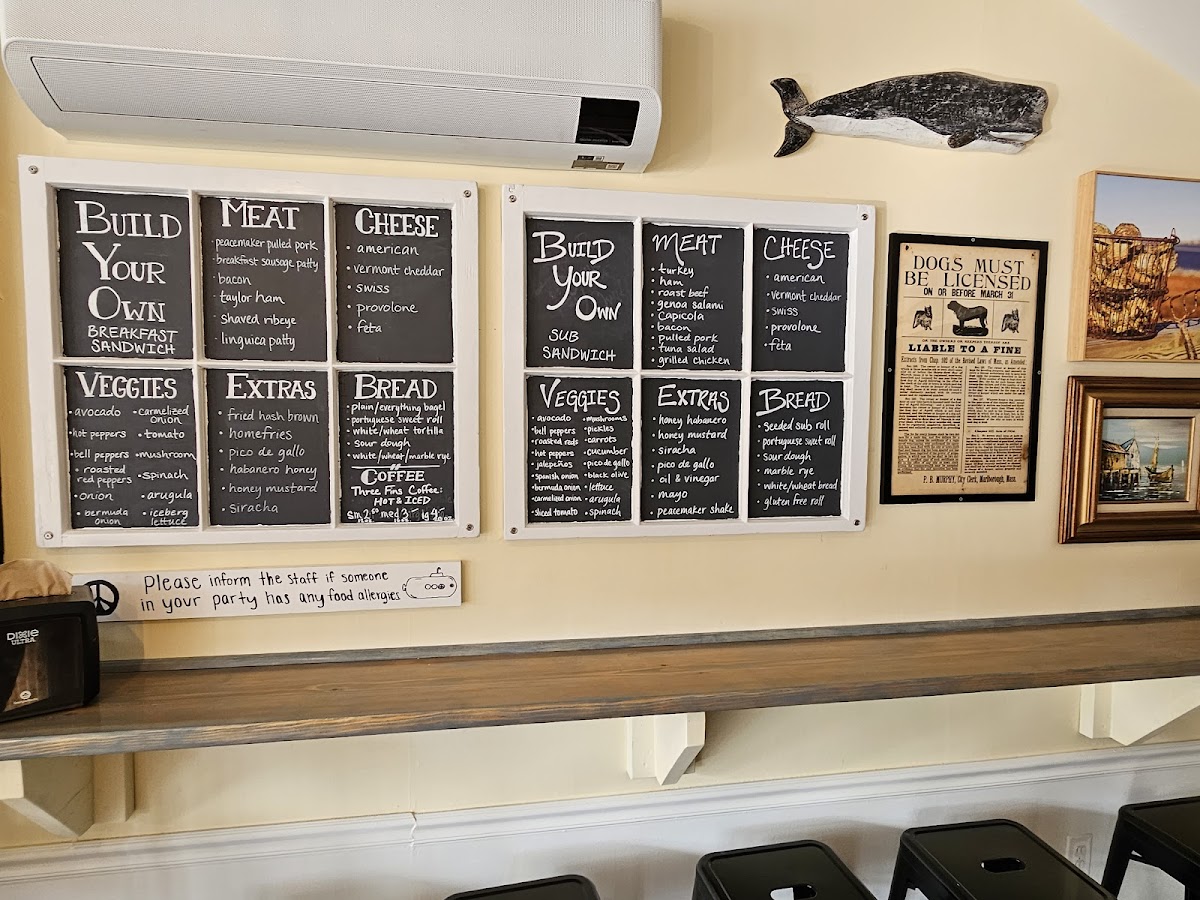 BUILD
YOUR
OWN
BREAKFAST
SANDWICH
MEAT
peacemaker pulled pork
breakfast sausage patty
bacon
taylor ham
shaved ribeye
linguica patty
CHEESE
• american
• vermont cheddar
• swiss
• provolone
• feta
VEGGIES
• avocado
• hot peppers
• bell peppers
• roasted
red peppers
• onion
• bermuda
onion
• carmelized
onion
• tomato
• mushroom
• spinach
• arugula
• iceberg
lettuce
EXTRAS
• fried hash brown
• homefries
• pico de gallo
• habanero honey
• honey mustard
• siracha
BREAD
• plain/everything bagel
• portuguese sweet roll
• white/wheat tortilla
• sour dough
• white/wheat/marble rye
COFFEE
Three Fins Coffee:
HOT & ICED
BUILD
YOUR
OWN
SUB
SANDWICH
MEAT
• turkey
• ham
• roast beef
• genoa salami
• capicola
• bacon
• pulled pork
• tuna salad
• grilled chicken
CHEESE
• american
• vermont cheddar
• swiss
• provolone
• feta
VEGGIES
• avocado
• bell peppers
• roasted reds
• hot peppers
• jalepeños
• spanish onion
• bermuda onion
• carmelized onion
• sliced tomato
• mushrooms
• pickles
• carrots
• cucumber
• pico de gallo
• black olive
• lettuce
• arugula
• spinach
EXTRAS
• honey habanero
• honey mustard
• siracha
• pico de gallo
• oil & vinegar
• mayo
• peacemaker shake
BREAD
• seeded sub roll
• portuguese sweet roll
• sour dough
• marble rye
• white/wheat bread
• gluten free roll
DOGS MUST
BE LICENSED
ON OR BEFORE MARCH 31
LIABLE TO A FINE
P. B. MURPHY, City Clerk, Marlborough, Mass.
Please inform the staff if someone
in your party has any food allergies
DIXIE
ULTRA